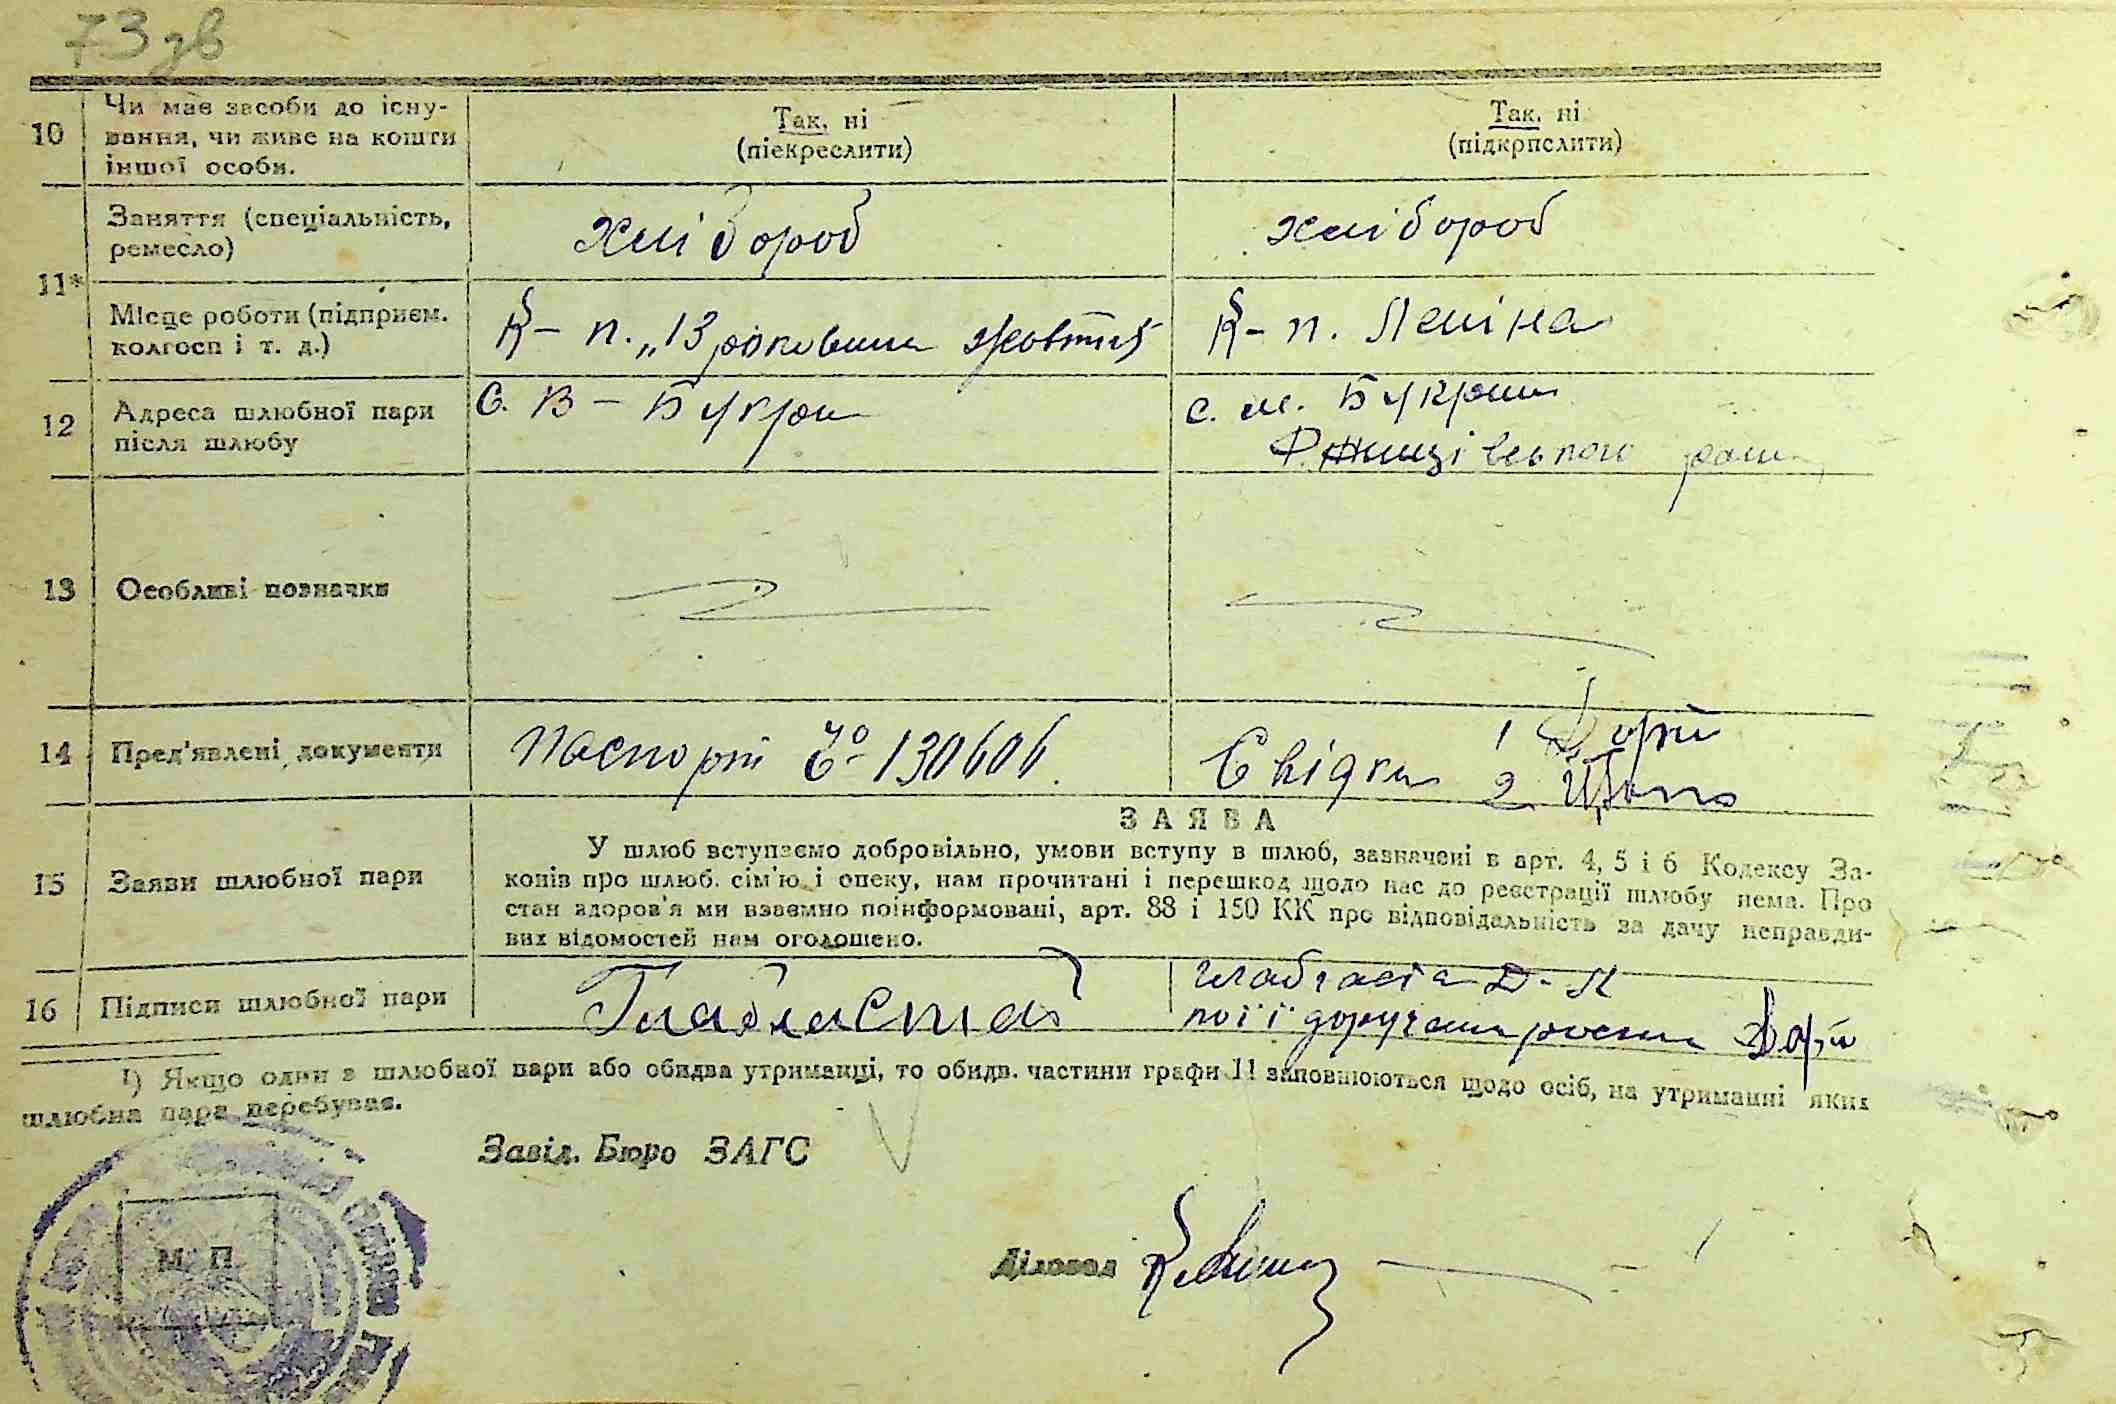 73 зв
10 Чи має засоби до існу-
вання, чи живе на кошти
іншої особи.
Так, ні
(піекреслити)
Так, ні
(підкрпслити)
11*
Заняття (спеціальність,
ремесло)
хлібороб
хлібороб
Місце роботи (підприєм.
колгосп і т. д.)
К-п. „13 роковини Жовтня
К-п. Леніна
12 Адреса шлюбної пари
після шлюбу
с. В-Букрин
с. м. Букрин
району
13 Особливі позначки
14 Пред'явлені документи
Паспорт № 130606
Свідки 1
2
ЗАЯВА
15 Заяви шлюбної пари
У шлюб вступаємо добровільно, умови вступу в шлюб, зазначені в арт. 4, 5 і 6 Кодексу За-
конів про шлюб. сім'ю і опеку, нам прочитані і перешкод щодо нас до реєстрації шлюбу нема. Про
стан здоров'я ми взаємно поінформовані, арт. 88 і 150 КК про відповідальність за дачу неправди-
вих відомостей нам оголошено.
16 Підписи шлюбної пари
Д-К
по її доручен
¹) Якщо один з шлюбної пари або обидва утриманці, то обидв. частини графи 11 заповнюються щодо осіб, на утриманні яких
шлюбна пара перебуває.
Завід. Бюро ЗАГС
М. П.
Діловод